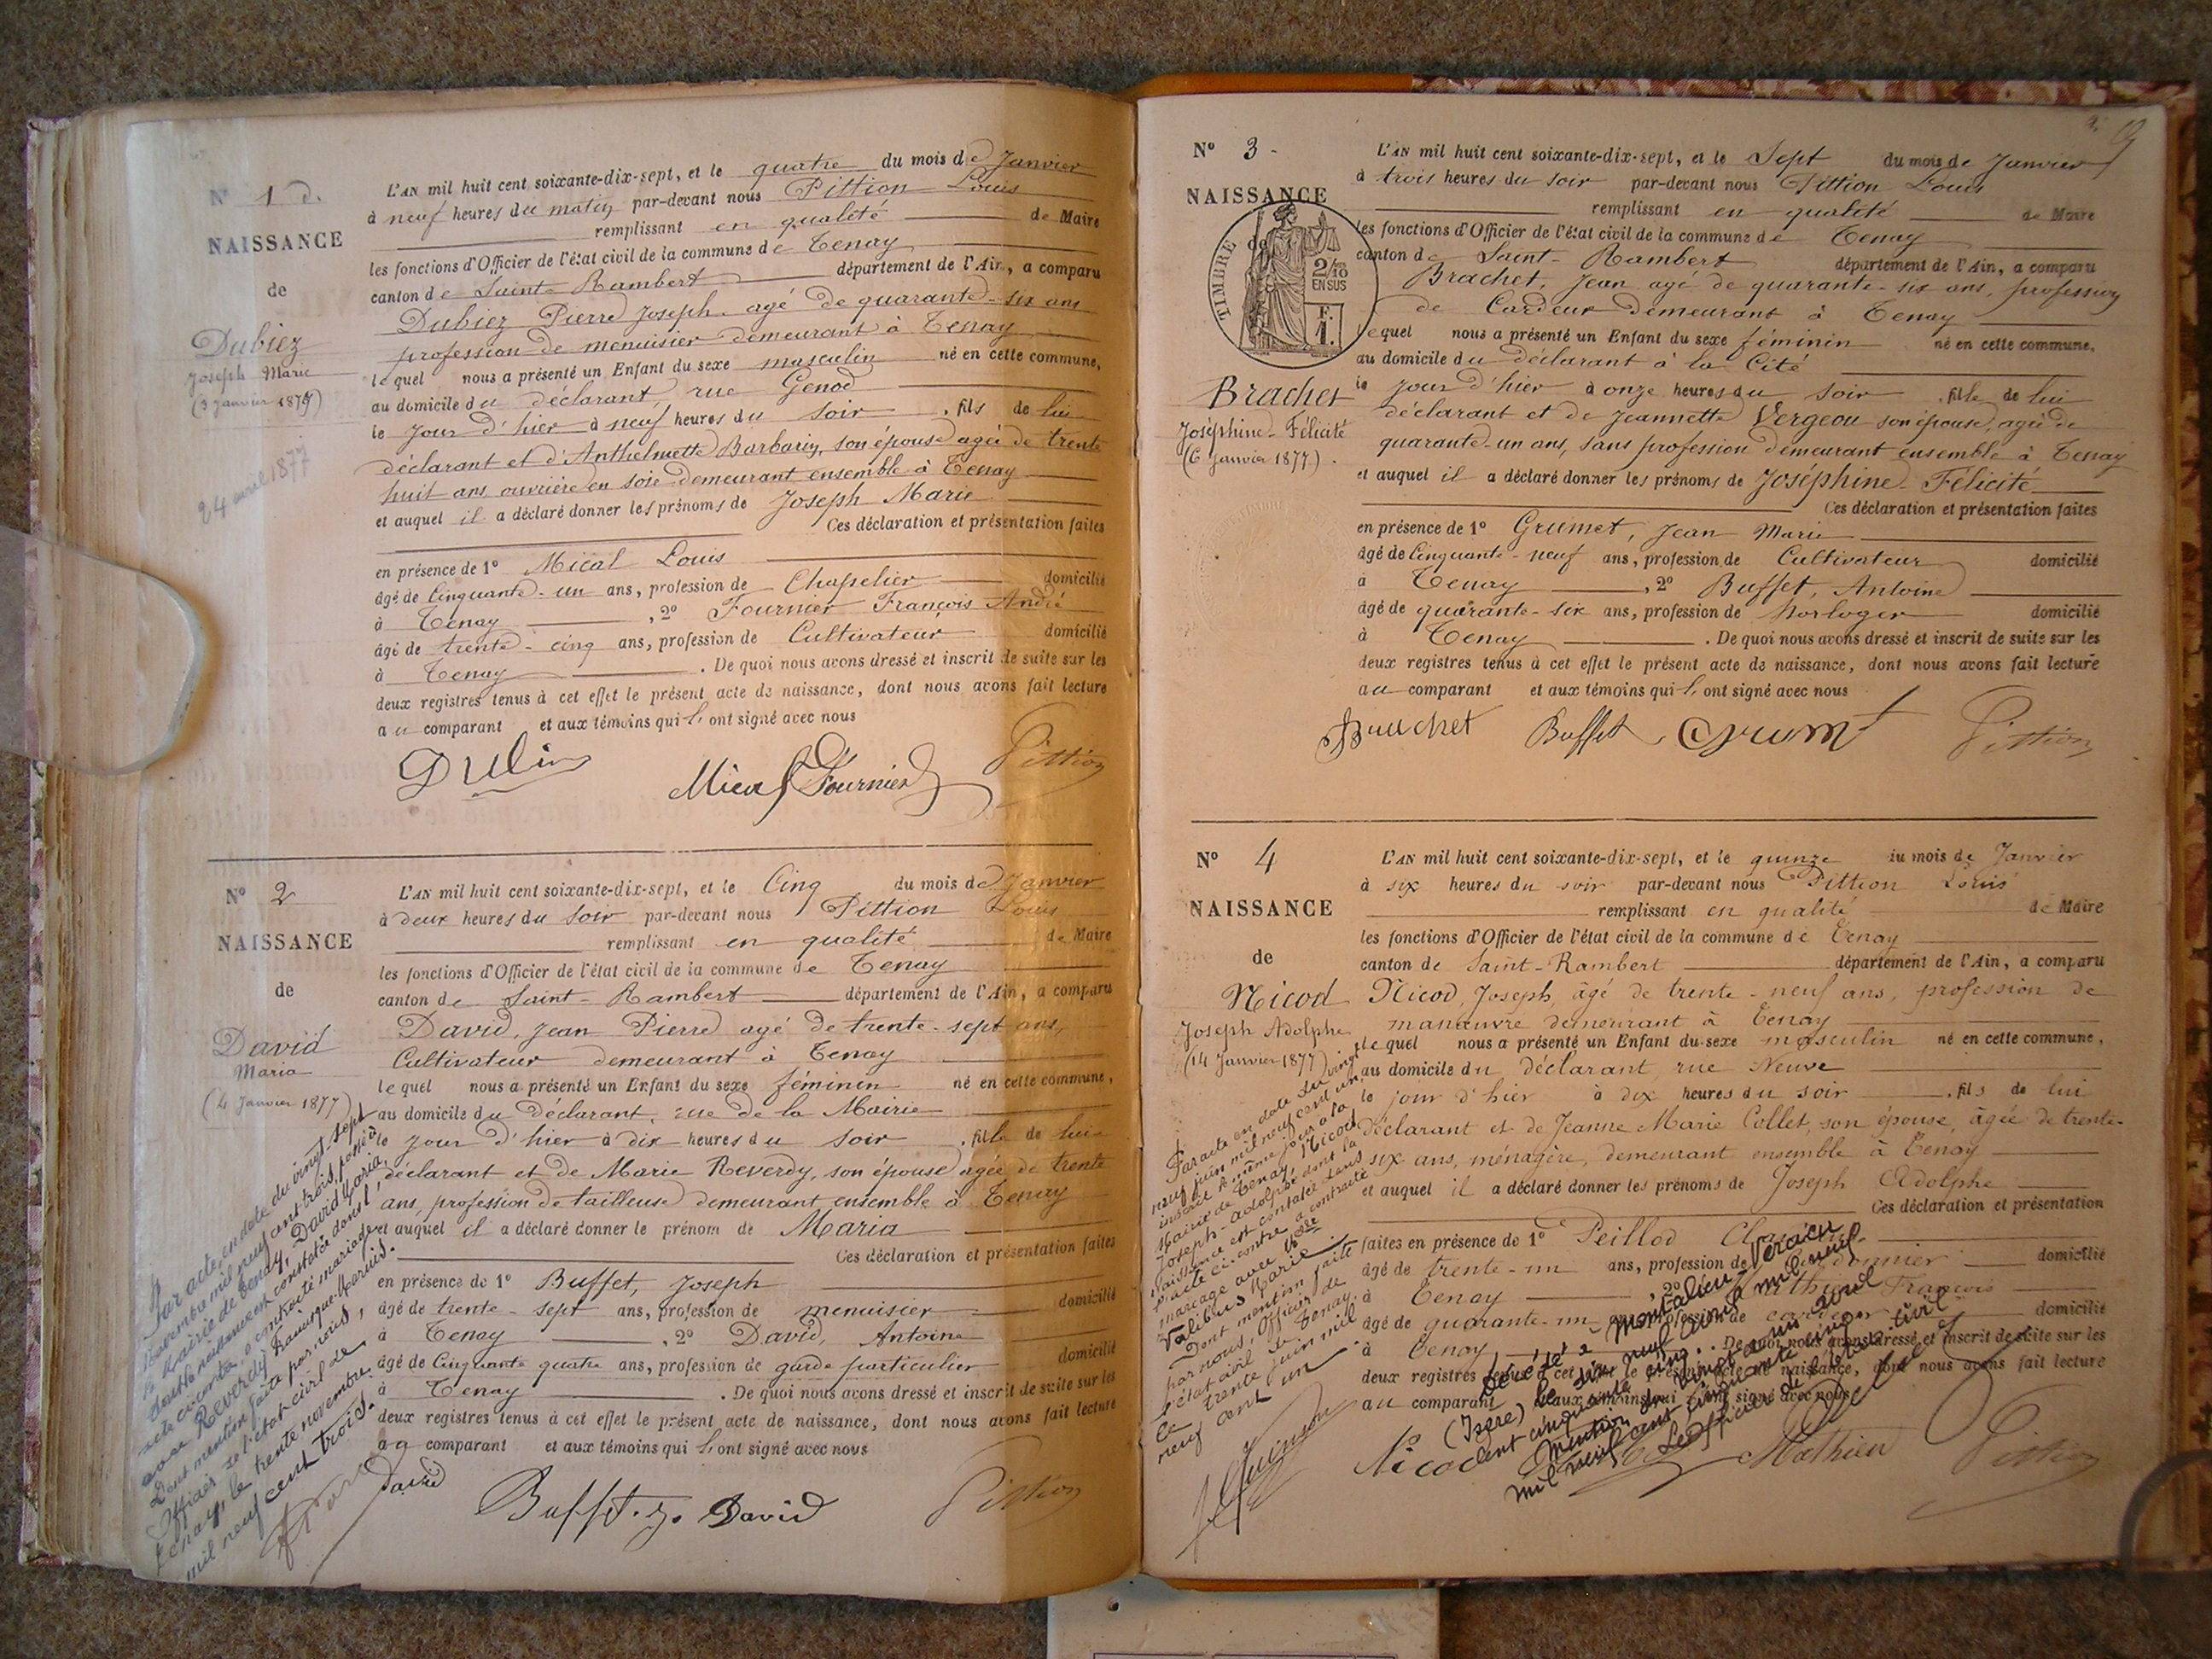 N° 1 d.
NAISSANCE
de
Dubiez
Joseph Marie
(3 Janvier 1877)
24 avril 1877
L'AN mil huit cent soixante-dix-sept, et le quatre du mois de Janvier
à neuf heures du matin par-devant nous Pittion Louis
remplissant en qualité de Maire
les fonctions d'Officier de l'état civil de la commune de Tenay
canton de Saint-Rambert département de l'Ain, a comparu
Dubiez Pierre Joseph agé de quarante-six ans
profession de menuisier demeurant à Tenay
lequel nous a présenté un Enfant du sexe masculin né en cette commune,
au domicile du déclarant, rue Genod
le jour d'hier à neuf heures du soir, fils de lui
déclarant et d'Anthelmette Barbarin, son épouse agée de trente
huit ans ouvrière en soie demeurant ensemble à Tenay
et auquel il a déclaré donner les prénoms de Joseph Marie
Ces déclaration et présentation faites
en présence de 1° Mical Louis
âgé de Cinquante-un ans, profession de Chapelier domicilié
à Tenay, 2° Fournier François André
âgé de trente-cinq ans, profession de Cultivateur domicilié
à Tenay. De quoi nous avons dressé et inscrit de suite sur les
deux registres tenus à cet effet le présent acte de naissance, dont nous avons fait lecture
au comparant et aux témoins qui l'ont signé avec nous
Mical Fournier Pittion
N° 2
NAISSANCE
de
David
Maria
(4 Janvier 1877)
L'AN mil huit cent soixante-dix-sept, et le Cinq du mois de Janvier
à deux heures du soir par-devant nous Pittion Louis
remplissant en qualité de Maire
les fonctions d'Officier de l'état civil de la commune de Tenay
canton de Saint-Rambert département de l'Ain, a comparu
David, Jean Pierre agé de trente-sept ans,
Cultivateur demeurant à Tenay
lequel nous a présenté un Enfant du sexe féminin né en cette commune,
au domicile du déclarant, rue de la Mairie
le jour d'hier à dix heures du soir, fille de lui
déclarant et de Marie Reverdy, son épouse agée de trente
ans, profession de tailleuse demeurant ensemble à Tenay
et auquel il a déclaré donner le prénom de Maria
Ces déclaration et présentation faites
en présence de 1° Buffet, Joseph
âgé de trente-sept ans, profession de menuisier domicilié
à Tenay, 2° David, Antoine
âgé de Cinquante quatre ans, profession de garde particulier domicilié
à Tenay. De quoi nous avons dressé et inscrit de suite sur les
deux registres tenus à cet effet le présent acte de naissance, dont nous avons fait lecture
au comparant et aux témoins qui l'ont signé avec nous
David Buffet. J. David Pittion
Par acte en date du vingt sept
Novembre mil neuf cent trois, passé à
la Mairie de Tenay, David Maria,
dont la naissance est constatée dans l'
acte ci-contre, a contracté mariage
avec Reverdy Marius.
Dont mention faite par nous,
Officier de l'état civil de
Tenay, le trente novembre
mil neuf cent trois.
N° 3
NAISSANCE
de
TIMBRE
2/10 EN SUS
F. 1.
Brachet
Joséphine-Félicité
(6 Janvier 1877).
L'AN mil huit cent soixante-dix-sept, et le Sept du mois de Janvier
à trois heures du soir par-devant nous Pittion Louis
remplissant en qualité de Maire
les fonctions d'Officier de l'état civil de la commune de Tenay
canton de Saint-Rambert département de l'Ain, a comparu
Brachet, Jean agé de quarante-six ans, profession
de Cardeur demeurant à Tenay
lequel nous a présenté un Enfant du sexe féminin né en cette commune,
au domicile du déclarant à la Cité
le jour d'hier à onze heures du soir, fille de lui
déclarant et de Jeannette Vergeou son épouse, agée de
quarante-un ans, sans profession demeurant ensemble à Tenay
et auquel il a déclaré donner les prénoms de Joséphine-Félicité
Ces déclaration et présentation faites
en présence de 1° Grumet, Jean Marie
âgé de Cinquante-neuf ans, profession de Cultivateur domicilié
à Tenay, 2° Buffet, Antoine
âgé de quarante-six ans, profession de horloger domicilié
à Tenay. De quoi nous avons dressé et inscrit de suite sur les
deux registres tenus à cet effet le présent acte de naissance, dont nous avons fait lecture
au comparant et aux témoins qui l'ont signé avec nous
Brachet Buffet Grumet Pittion
N° 4
NAISSANCE
de
Nicod
Joseph Adolphe
(14 Janvier 1877)
L'AN mil huit cent soixante-dix-sept, et le quinze du mois de Janvier
à six heures du soir par-devant nous Pittion Louis
remplissant en qualité de Maire
les fonctions d'Officier de l'état civil de la commune de Tenay
canton de Saint-Rambert département de l'Ain, a comparu
Nicod, Joseph, âgé de trente-neuf ans, profession de
manœuvre demeurant à Tenay
lequel nous a présenté un Enfant du sexe masculin né en cette commune,
au domicile du déclarant, rue Neuve
le jour d'hier à dix heures du soir, fils de lui
déclarant et de Jeanne Marie Collet, son épouse, âgée de trente-
six ans, ménagère, demeurant ensemble à Tenay
et auquel il a déclaré donner les prénoms de Joseph Adolphe
Ces déclaration et présentation
faites en présence de 1° Peillod
âgé de trente-un ans, profession de domicilié
à Tenay, 2° François
âgé de quarante-un ans, profession de domicilié
à Tenay. De quoi nous avons dressé et inscrit de suite sur les
deux registres tenus à cet effet le présent acte de naissance, dont nous avons fait lecture
au comparant et aux témoins qui l'ont signé avec nous
Nicod Mathieu Pittion
Par acte en date du vingt
neuf juin mil neuf cent un,
inscrit le même jour à la
Mairie de Tenay, Nicod
Joseph-Adolphe dont la
naissance est constatée dans
l'acte ci-contre a contracté
mariage avec
Marie
Dont mention faite
par nous, Officier de
l'état civil de Tenay.
Le trente juin mil
neuf cent un.
Décédé à Montalieu-Vercieu
(Isère) le six neuf mil neuf
cent cinquante cinq.
Mention du vingt avril
mil neuf cent cinquante cinq
L'officier de l'état civil